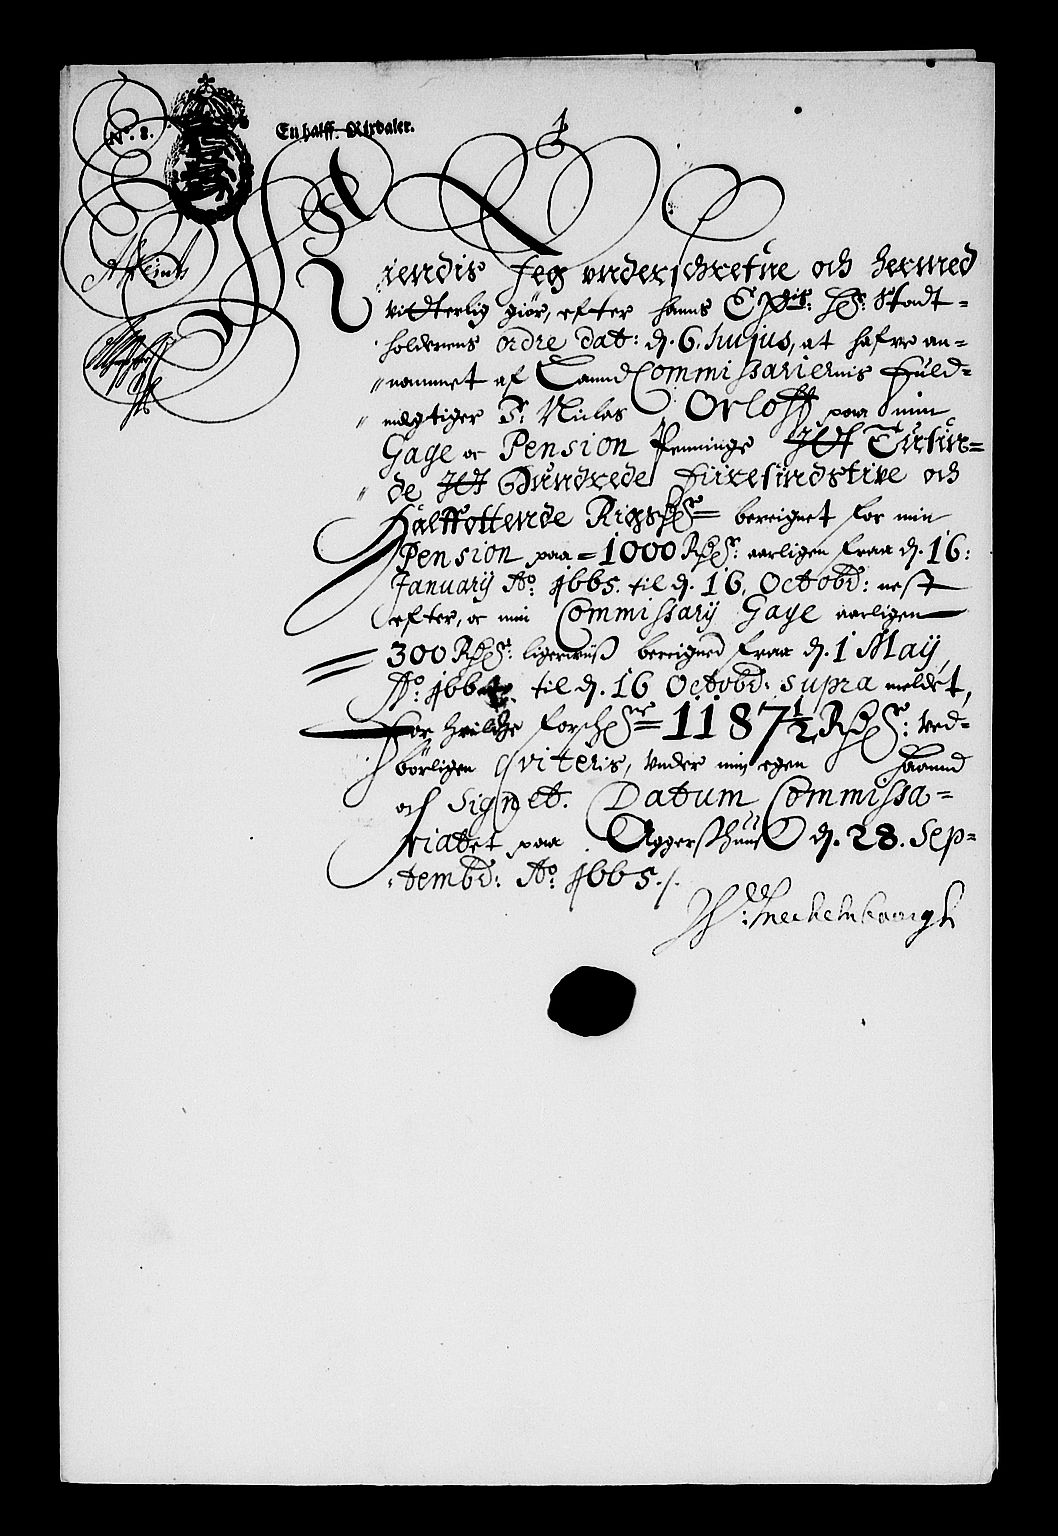 N.o 8.
En halff. Rixdaler.
Kiendis Jeg underschrefne och hermed
vitterlig giör, efter hanns Exis: Hr: Stadt-
holderens ordre dat: d. 6. Junius, at hafve an-
nammet af Lannd Commissariernis Fuld-
mægtiger Sr. Niclas Orloff paa min
Gage oc Pension Penninge Jtt Tusin-
de Jtt Hundrede Firesindstive och
Halffottende Rigsdlr = bereignet for min
Pension paa = 1000 Rdlr: aarligen fraa d. 16:
January Ao. 1665. til d. 16. Octobr: nest
efter, oc min Commissary Gage aarligen
300 Rdlr: ligerwiiss bereigned fraa d. 1 May
Ao. 166 til d. 16 Octobr: supra meldet,
for hvilche forschr.ne = 1187½ Rdlr: ved-
börligen qviteris, under min egen Haannd
och Signet. Datum Commissa-
riatet paa Aggersshuus d. 28. Sep-
tembr: Ao. 1665./.